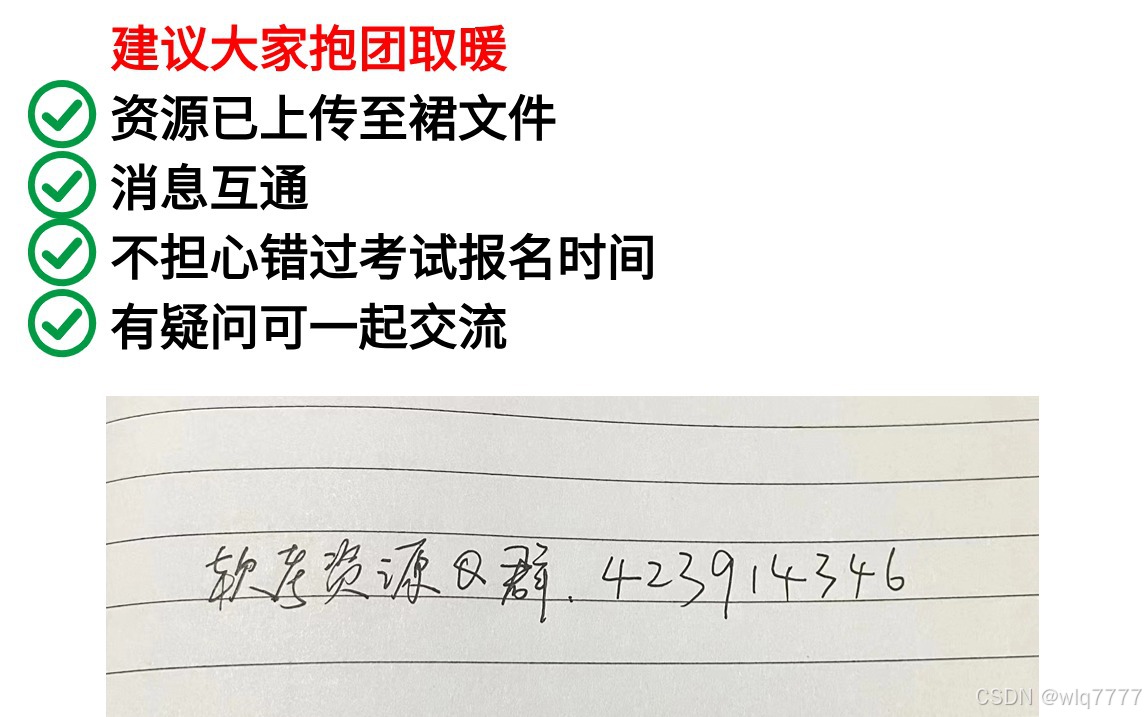 建议大家抱团取暖
资源已上传至裙文件
消息互通
不担心错过考试报名时间
有疑问可一起交流
软考资源Q群.423914346
CSDN @wlq7777